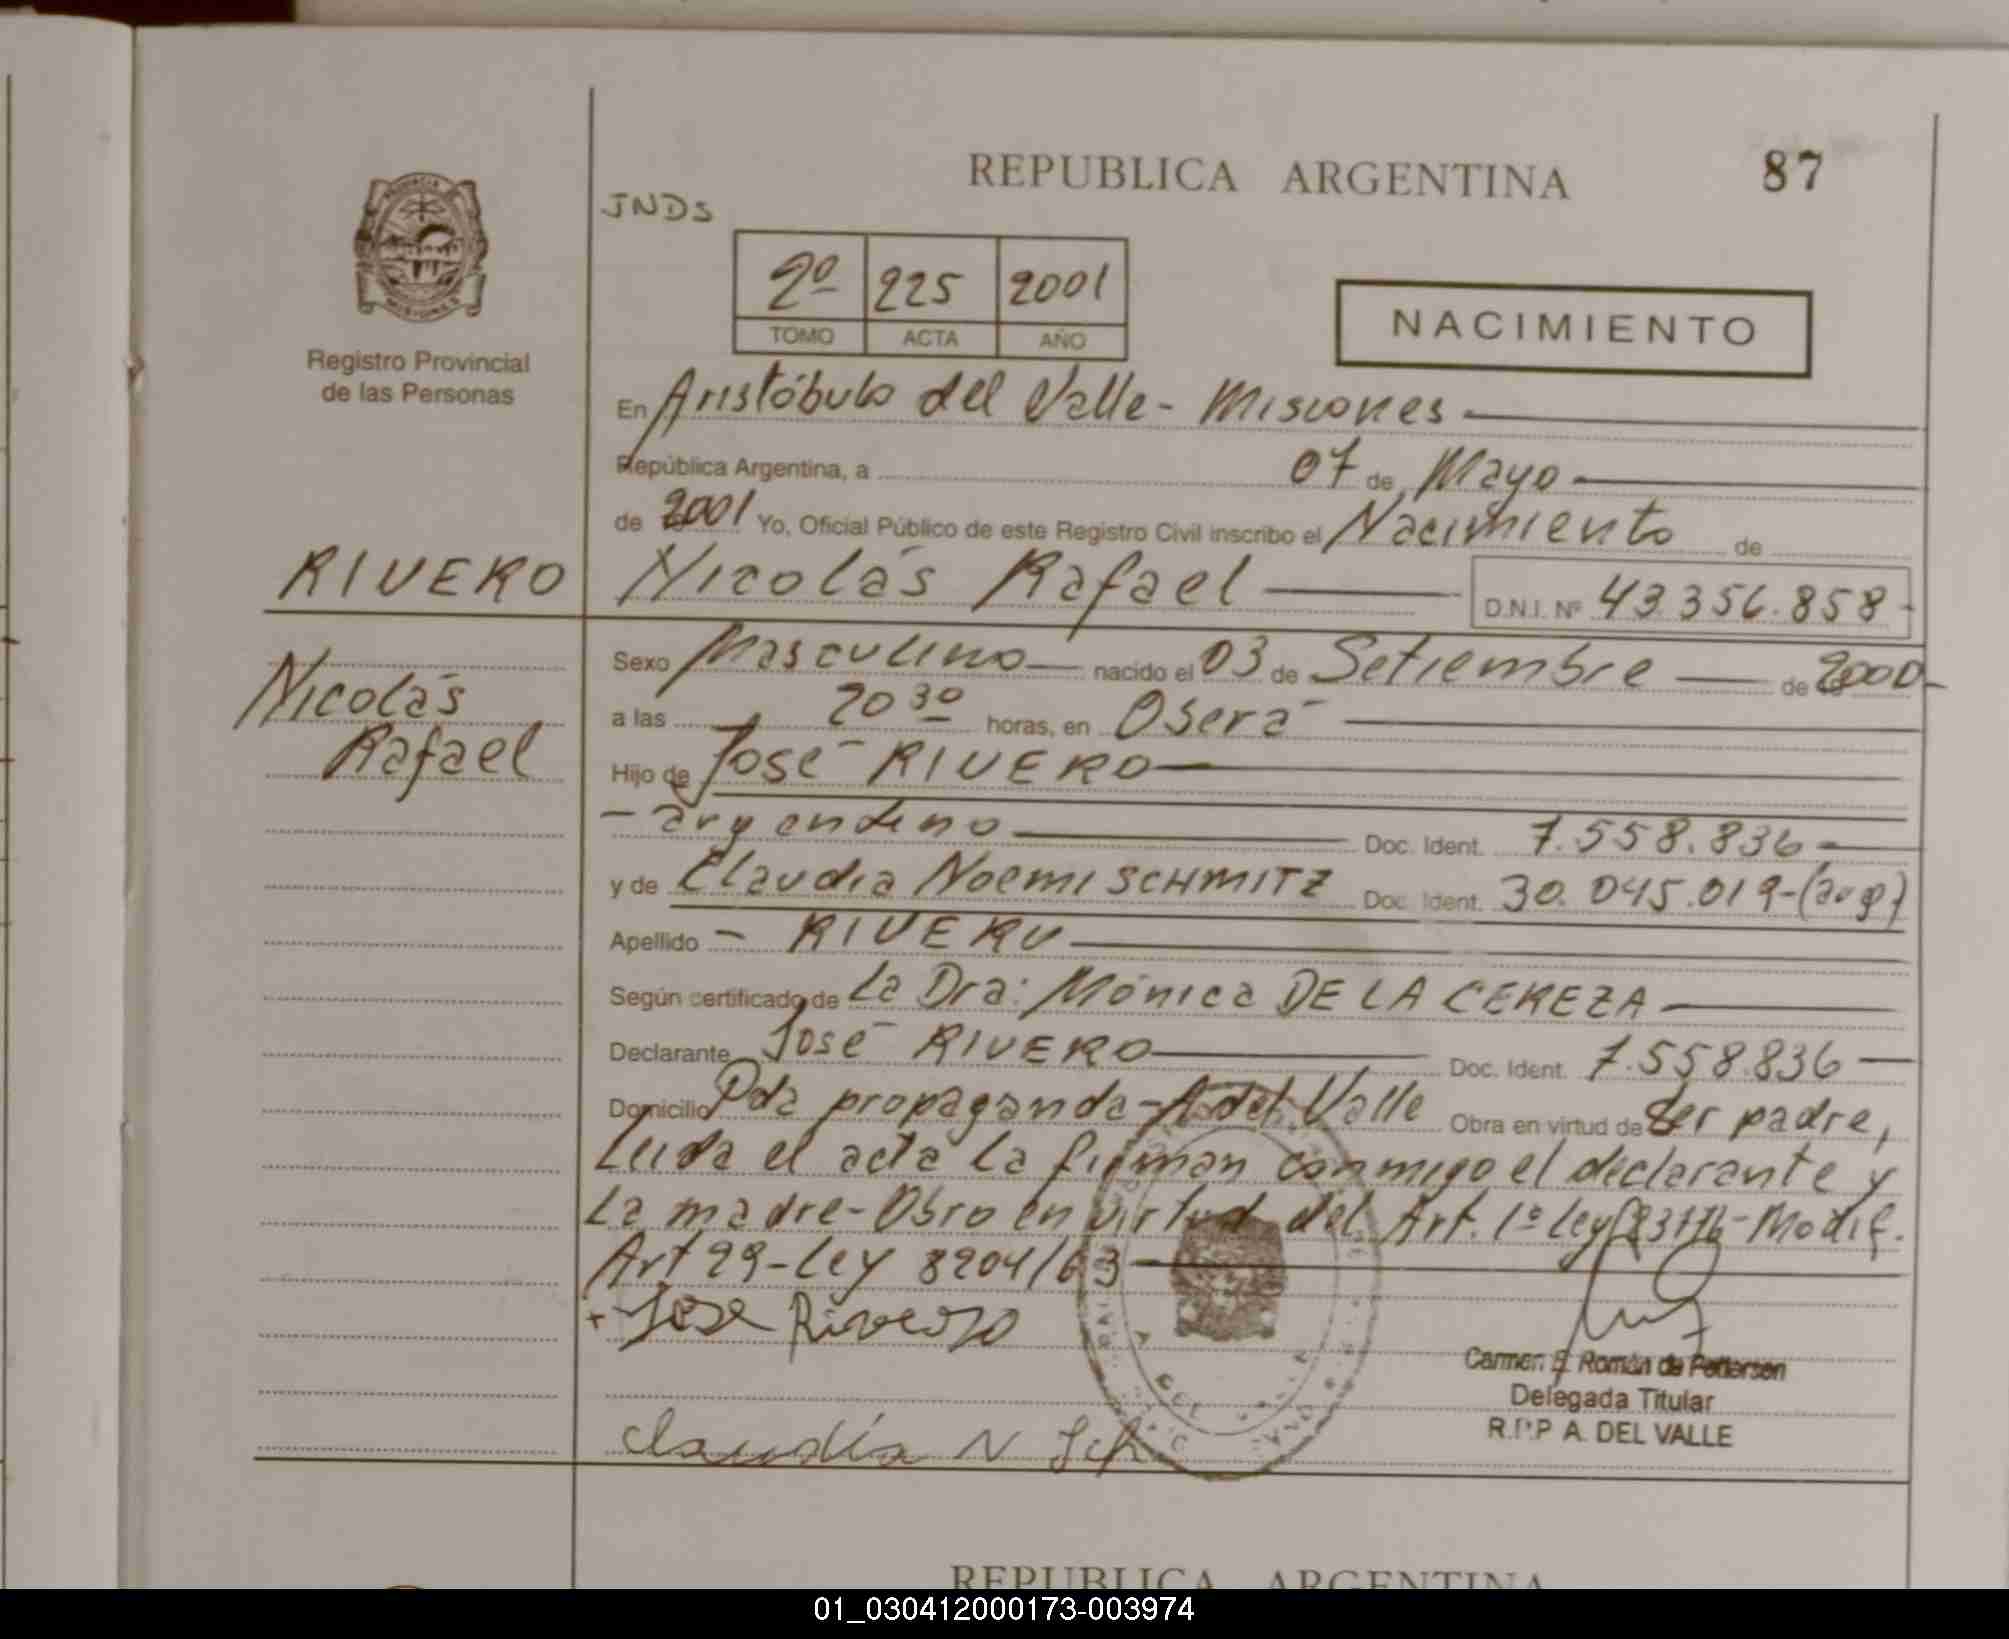 REPUBLICA ARGENTINA 87
JNDS
2º 225 2001
TOMO ACTA AÑO
NACIMIENTO
PROVINCIA
MISIONES
Registro Provincial
de las Personas
En Aristóbulo del Valle - Misiones
República Argentina, a 07 de Mayo
de 2001 Yo, Oficial Público de este Registro Civil inscribo el Nacimiento de
RIVERO Nicolás Rafael D.N.I. Nº 43.356.858-
Nicolás
Rafael
Sexo Masculino nacido el 03 de Setiembre de 2000-
a las 20 30 horas, en Oberá
Hijo de José RIVERO
- argentino Doc. Ident. 7.558.836
y de Claudia Noemi SCHMITZ Doc. Ident. 30.045.019-(arg)
Apellido - RIVERO
Según certificado de La Dra: Mónica DE LA CEREZA
Declarante José RIVERO Doc. Ident. 7.558.836
Domicilio Pda propaganda - A del Valle Obra en virtud de ser padre,
Leida el acta la firman conmigo el declarante y
La madre - Obro en virtud del Art. 1º Ley - Modif.
Art 29 - Ley 8204/63
+ Jose Rivero
Claudia N Sch
Carmen E. Román de Pettersen
Delegada Titular
R.P.P A. DEL VALLE
REPUBLICA ARGENTINA
01_030412000173-003974